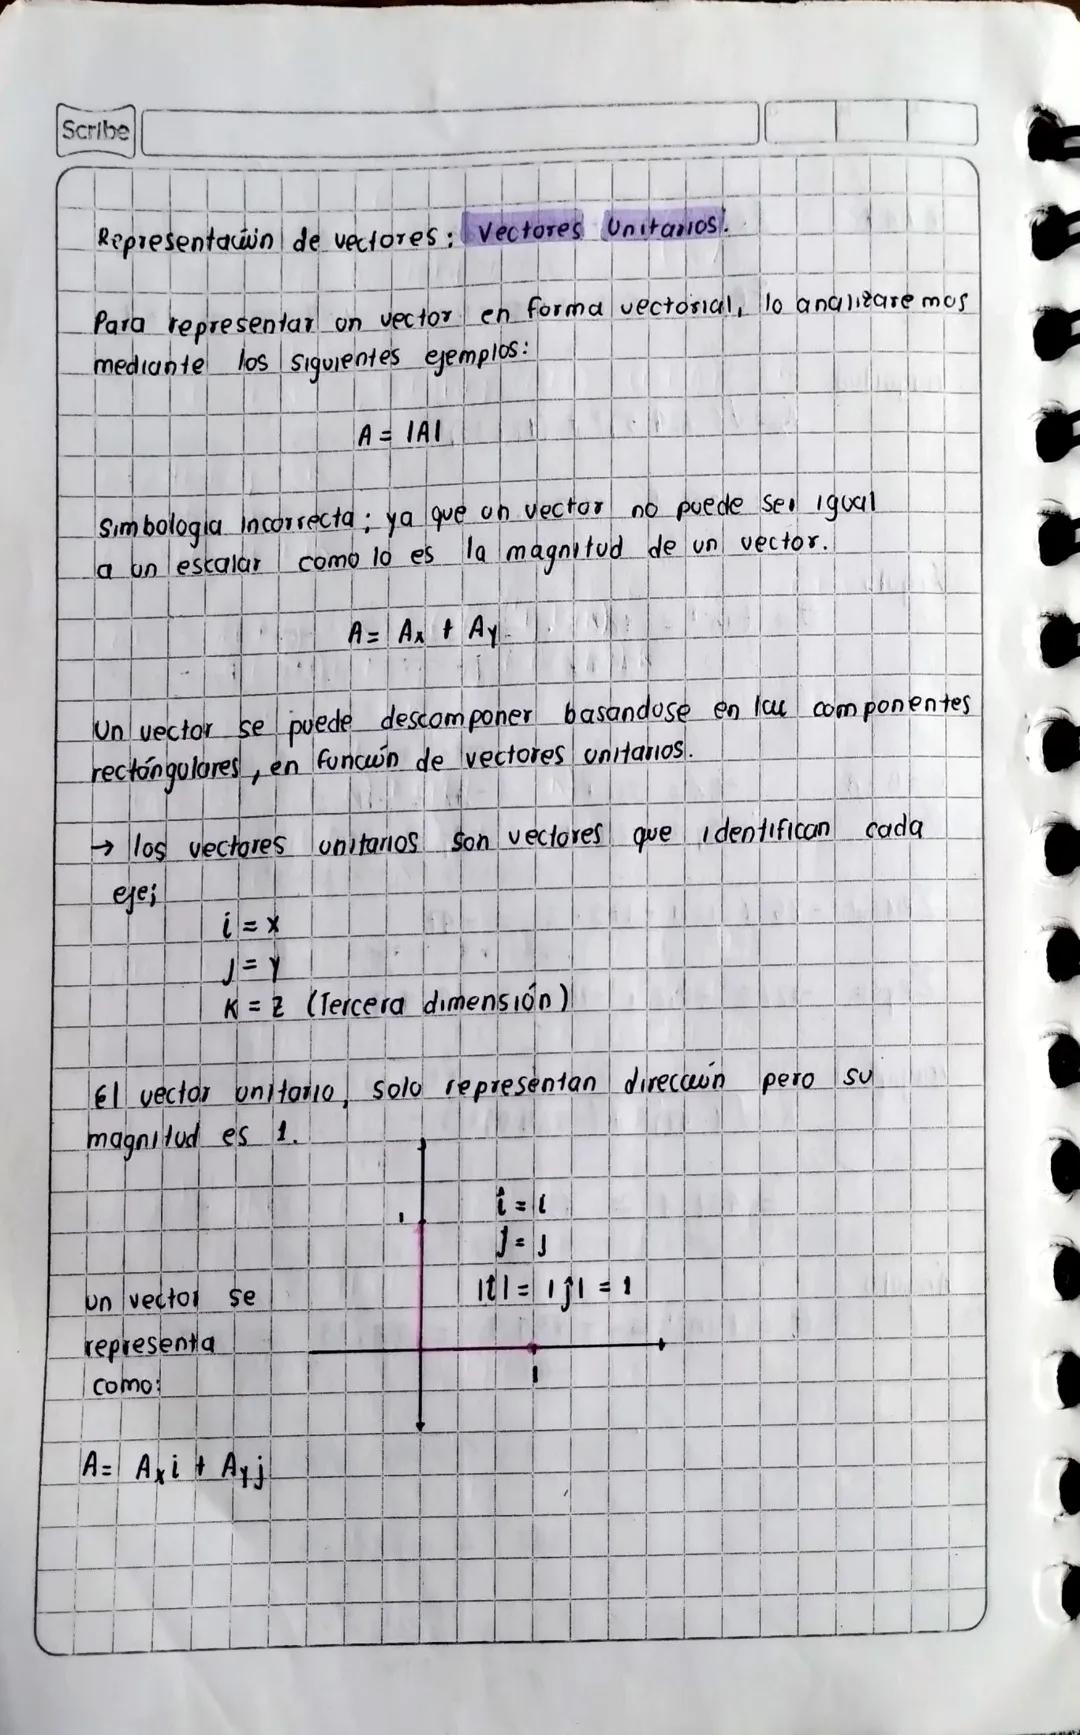 Scribe
Representación de vectores: Vectores Unitarios.
Para representar un vector en forma vectorial, lo analizaremos
mediante los siguientes ejemplos:
A = |A|
Simbología incorrecta; ya que un vector no puede ser igual
a un escalar como lo es la magnitud de un vector.
A = Ax + Ay
Un vector se puede descomponer basandose en las componentes
rectángulares, en función de vectores unitarios.
→ los vectores unitarios son vectores que identifican cada
eje;
i = x
j = y
K = z (Tercera dimensión)
El vector unitario, solo representan dirección pero su
magnitud es 1.
1
î = i
j = j
|î| = |ĵ| = 1
un vector se
representa
como:
1
A = Axi + Ayj